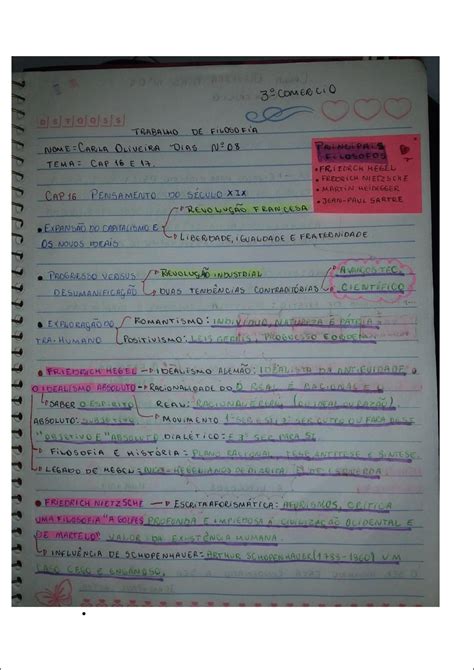 3º COMERCIO
TRABALHO DE FILOSOFIA
NOME: CARLA OLIVEIRA DIAS Nº 08
TEMA: CAP 16 E 17.
PRINCIPAIS
FILOSOFOS
• FRIEDRICH HEGEL
• FREDRICH NIETZSCKE
• MARTIN HEIDEGGER
• JEAN-PAUL SARTRE
CAP 16 PENSAMENTO DO SÉCULO XIX
REVOLUÇÃO FRANCESA
• EXPANSÃO DO CAPITALISMO E
OS NOVOS IDEAIS
LIBERDADE, IGUALDADE E FRATERNIDADE
• PROGRESSO VERSUS
DESUMANIFICAÇÃO
REVOLUÇÃO INDUSTRIAL
DUAS TENDÊNCIAS CONTRADITÓRIAS
AVANÇOS TEC.
CIENTÍFICO
• EXPLORAÇÃO DO
TRA-HUMANO
ROMANTISMO:
POSITIVISMO: LEIS GERAIS, PROGRESSO
• FRIEDRICH HEGEL IDEALISMO ALEMÃO: IDEALISTA DA
O IDEALISMO ABSOLUTO RACIONALIDADE DO O REAL É RACIONAL E O
SABER O ESPIRITO REAL:
ABSOLUTO: SUBJETIVO MOVIMENTO
"OBJETIVO E "ABSOLUTO DIALÉTICO: E 3º SER PARA SI
FILOSOFIA E HISTÓRIA: PLANO RACIONAL, TESE ANTITESE E SINTESE.
LEGADO DE HEGEL:
• FRIEDRICH NIETZSCHE ESCRITA AFORISMÁTICA: AFORISMOS, CRITICA
UMA FILOSOFIA "A GOLPES PROFUNDA E IMPIEDOSA À CIVILIZAÇÃO OCIDENTAL E
DE MARTELO" VALOR DA EXISTÊNCIA HUMANA.
INFLUÊNCIA DE SCHOPENHAVER: ARTHUR SCHOPENHAUER (1788-1860) UM
CASO CEGO E ENGANOSO.